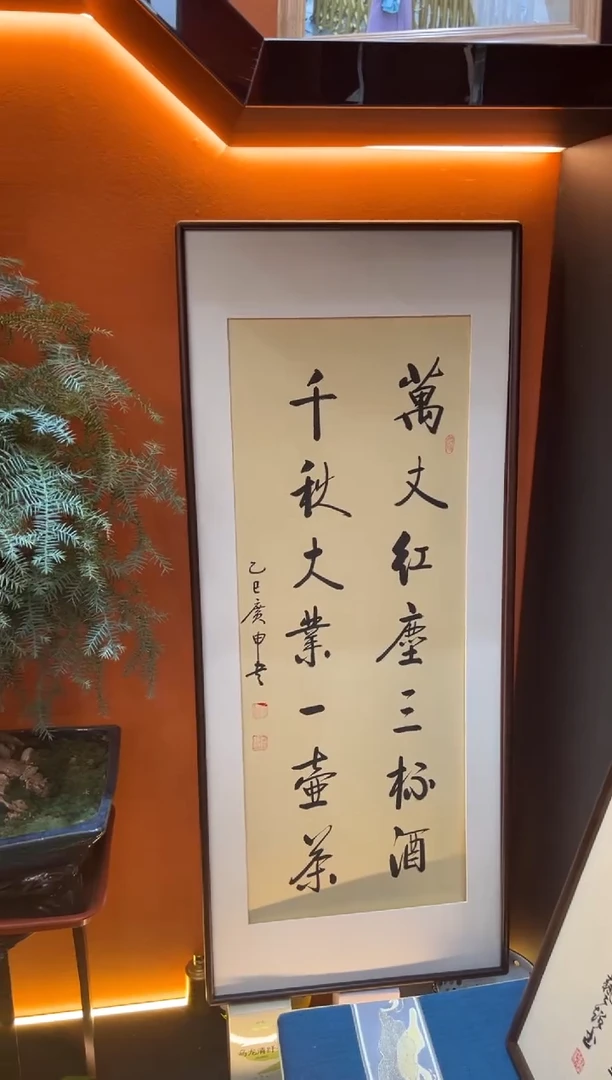 萬丈紅塵三杯酒
千秋大業一壺茶
乙巳廣申書